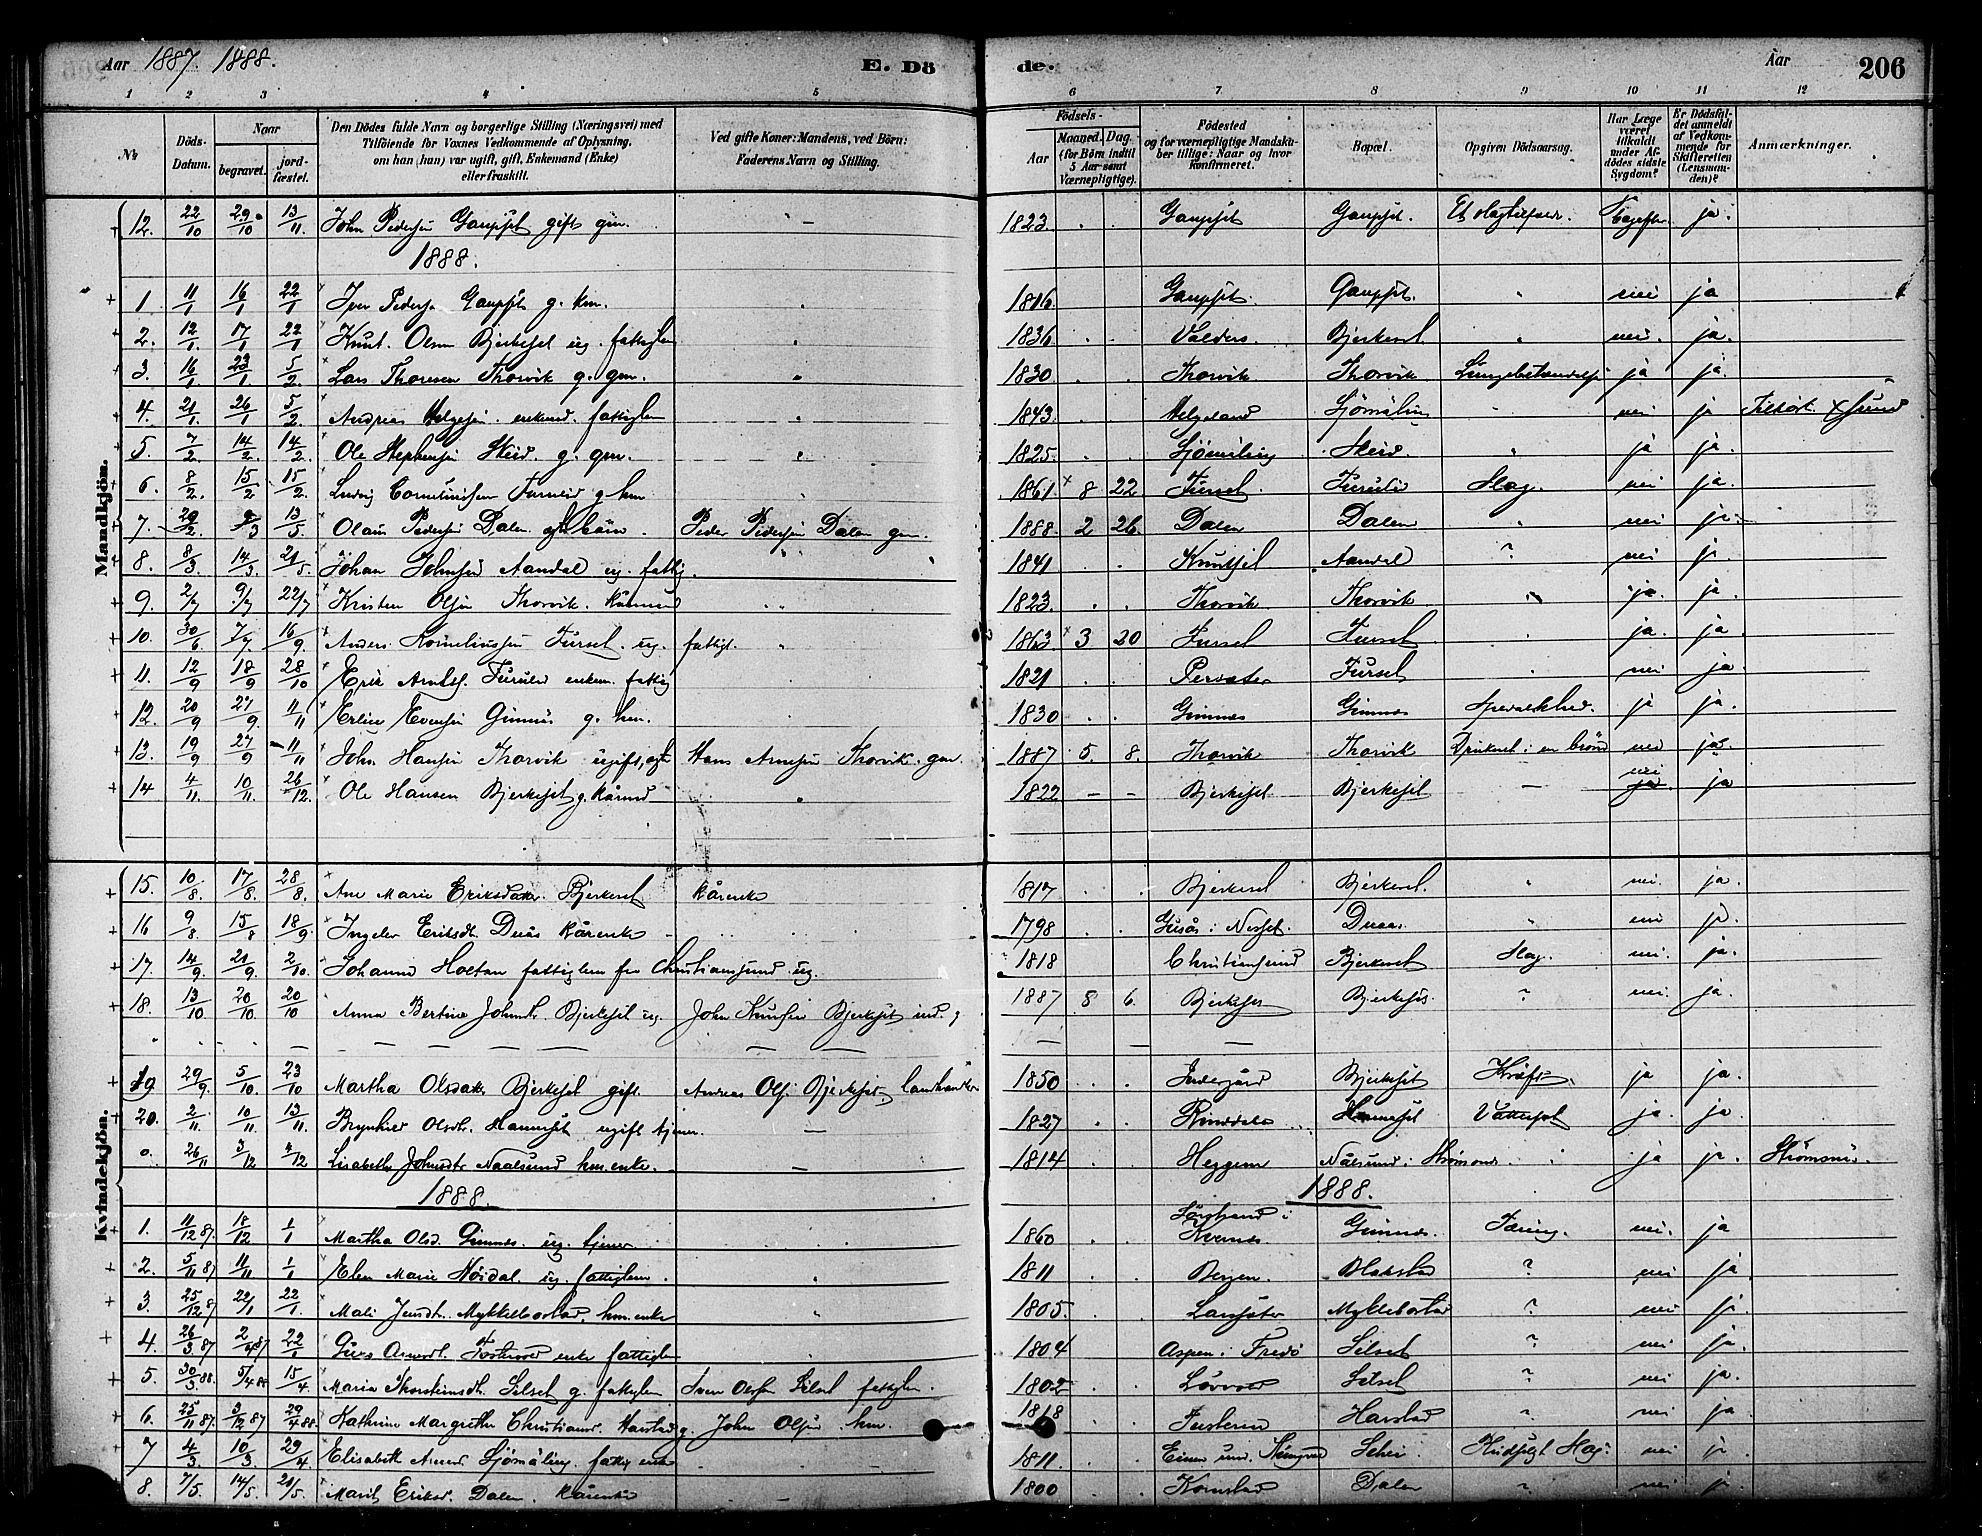 Aar 1887. 1888. E. Dö de. Aar 206
1 2 3 4 5 6 7 8 9 10 11 12
№ Döds-Datum. Naar begravet. jord-fæstet. Den Dödes fulde Navn og borgerlige Stilling (Næringsvei) med Tilföiende for Voxnes Vedkommende af Oplysning, om han (hun) var ugift, gift, Enkemand (Enke) eller fraskilt. Ved gifte Koner: Mandens, ved Börn: Faderens Navn og Stilling. Födsels- Aar Maaned. Dag. (for Börn indtil 5 Aar samt Værnepligtige). Födested og for værnepligtige Mandskaber tillige: Naar og hvor konfirmeret. Bopæl. Opgiven Dödsaarsag. Har Læge været tilkaldt under Afdödes sidste Sygdom? Er Dödsfaldet anmeldt af Vedkommende for Skifteretten (Lensmanden)? Anmærkninger.
Mandkjön.
12. 22/10 29/10 13/11 John Pedersen Gaupset gift gm. - 1823 Gaupset Gaupset. ja.
1888.
1. 11/1 16/1 22/1 Iver Pedersen Gaupset g. km. 1816 Gaupset. Gaupset. nei ja
2. 12/1 17/1 22/1 Knut Olsen Bjerkeset ug. fattiglem 1836 Valders Bjerkeset nei. ja.
3. 16/1 23/1 5/2 Lars Thoresen Thorvik g. gm. 1830 Thorvik Thorvik Lungebetændelse ja ja.
4. 21/1 26/1 5/2 Andreas Helgesen enkemd. fattiglem 1843 Helgeland Sjömæling nei ja
5. 7/2 14/2 14/2 Ole Stephensen Skeid g. gm. 1825 Sjömæling Skeid. ja ja.
6. 8/2 15/2 15/2 Ludvig Corneliussen Furulid g km 1861 8 22 Furset Furulid Slag. nei ja.
7. 29/2 9/3 13/5 Olaus Pedersen Dalen barn. Peder Pedersen Dalen gm. 1888 2 26 Dalen Dalen nei ja.
8. 8/3 14/3 21/5 Johan Johnsen Aandal ug. fattig. 1841 Knutset Aandal ? nei ja.
9. 2/7 9/7 22/7 Kristen Olsen Thorvik. kårmd 1823 Thorvik Thorvik ja. ja.
10. 30/6 7/7 16/9 Anders Korneliussen Furset. ug. fattigl. 1863 3 20 Furset Furset ja. ja.
11. 12/9 18/9 28/10 Erik Arntss. Furulid enkem. fattig 1821 Furset nei ja.
12. 20/9 27/9 11/11 Erlien Evensen Gimnæs g. km. 1830 Gimnæs Gimnæs Spedalskhed. ja ja.
13. 19/9 27/9 11/11 John Hansen Thorvik ugift, Hans Arnesen Thorvik. gm. 1887 5. 8. Thorvik Thorvik Druknet i en brönd nei ja.
14 4/11. 10/11. 26/12. Ole Hansen Bjerkeset g. kårmd 1822 - - Bjerkeset Bjerkeset - nei ja
Kvindekjön.
15. 10/8. 17/8. 28/8. Ane Marie Eriksdatter Bjerkeset kårenke 1817 Bjerkeset Bjerkeset. nei. ja.
16 9/8. 15/8 18/9. Ingeler Eriksdt. Duås kårenke 1798 i Nesset. Duaas. nei ja
17. 14/9 21/9. 2/10. Johanne Hoctan fattiglem fra Christiansund ug. 1818 Christiansund Bjerkeset Slag. nei. ja.
18. 13/10 20/10 20/10 Anna Bertine Johnsdt. Bjerkeset ug. John Knutsen Bjerkeset ind. g 1887 8 6. Bjerkeset Bjerkeset. ? nei. ja.
19 29/9. 5/10. 23/10 Martha Olsdatter Bjerkeset gift. Andreas Ols. Bjerkeset. landhandler 1850 Indergård Bjerkeset Kræft. ja ja.
20. 2/11. 10/11. 13/11. Brynhild Olsdt. Hanneset ugift tjener. - 1827 Rinddalen Hanneset Vattersot ja. ja.
0. 26/11 3/12 4/12 Lisabeth Johnsdtr Naalsund km.enke. - 1814 Heggem Nålsund i ja ja.
1888. 1888.
1. 11/12 87. 18/12 1/1 Martha Olsd. Gimnæs. ug. tjener 1860 Sörstrand i Kvernes Gimnæs. Tæring. nei. ja
2. 5/11 87 11/11 1/1 Elen Marie Nördal ug. fattiglem. 1811 Bergen. Blakstad ? nei ja.
3. 25/12 87 22/1 22/1. Mali Jensdt. Mykkelbostad. km. enke 1805. Langsæter Myklebostad ? nei ja.
4. 26/3 87 2/4 87 22/1 Guro Arnesdt. enke fattiglem 1804 Aspen i Fredö Silset ? nei ja.
5. 30/3 88. 5/4 88 15/4. Maria Thorsteinsdt. Silset g. fattiglem Sven Olsen Silset fattiglem. 1802 Lövvold Silset ? nei ja.
6. 25/11 87. 3/12 87 29/4 88. Kathrine Margrethe Christiansd. Harstad g. John Olsen km. 1818 Tusteren Harstad ? nei ja
7 4/3 10/3 29/4 Elisabeth Arnesd Sjömæling. fattig enke 1811. Schei Slag. nei ja
8. 7/5 14/5. 21/5. Marit Eriksd. Dalen. kårenke - 1800 Kornstad Dalen ? nei ja